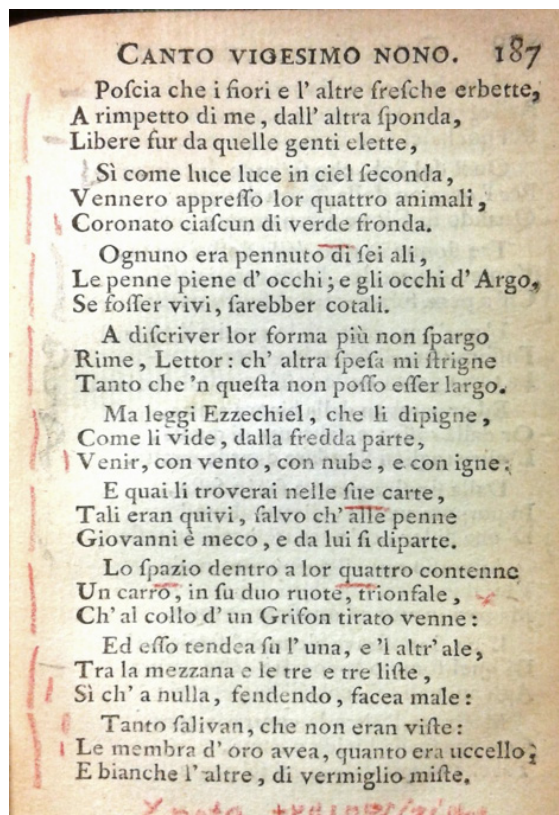 CANTO VIGESIMO NONO. 187
Poſcia che i fiori e l' altre freſche erbette,
A rimpetto di me, dall' altra ſponda,
Libere fur da quelle genti elette,
Sì come luce luce in ciel ſeconda,
Vennero appreſſo lor quattro animali,
Coronato ciaſcun di verde fronda.
Ognuno era pennuto di ſei ali,
Le penne piene d' occhi; e gli occhi d' Argo,
Se foſſer vivi, ſarebber cotali.
A diſcriver lor forma più non ſpargo
Rime, Lettor: ch' altra ſpeſa mi ſtrigne
Tanto che 'n queſta non poſſo eſſer largo.
Ma leggi Ezzechiel, che li dipigne,
Come li vide, dalla fredda parte,
Venir, con vento, con nube, e con igne;
E quai li troverai nelle ſue carte,
Tali eran quivi, ſalvo ch' alle penne
Giovanni è meco, e da lui ſi diparte.
Lo ſpazio dentro a lor quattro contenne
Un carro, in ſu duo ruote, trionfale,
Ch' al collo d' un Grifon tirato venne:
Ed eſſo tendea ſu l' una, e 'l altr' ale,
Tra la mezzana e le tre e tre liſte,
Sì ch' a nulla, fendendo, facea male:
Tanto ſalivan, che non eran viſte:
Le membra d' oro avea, quanto era uccello;
E bianche l' altre, di vermiglio miſte.